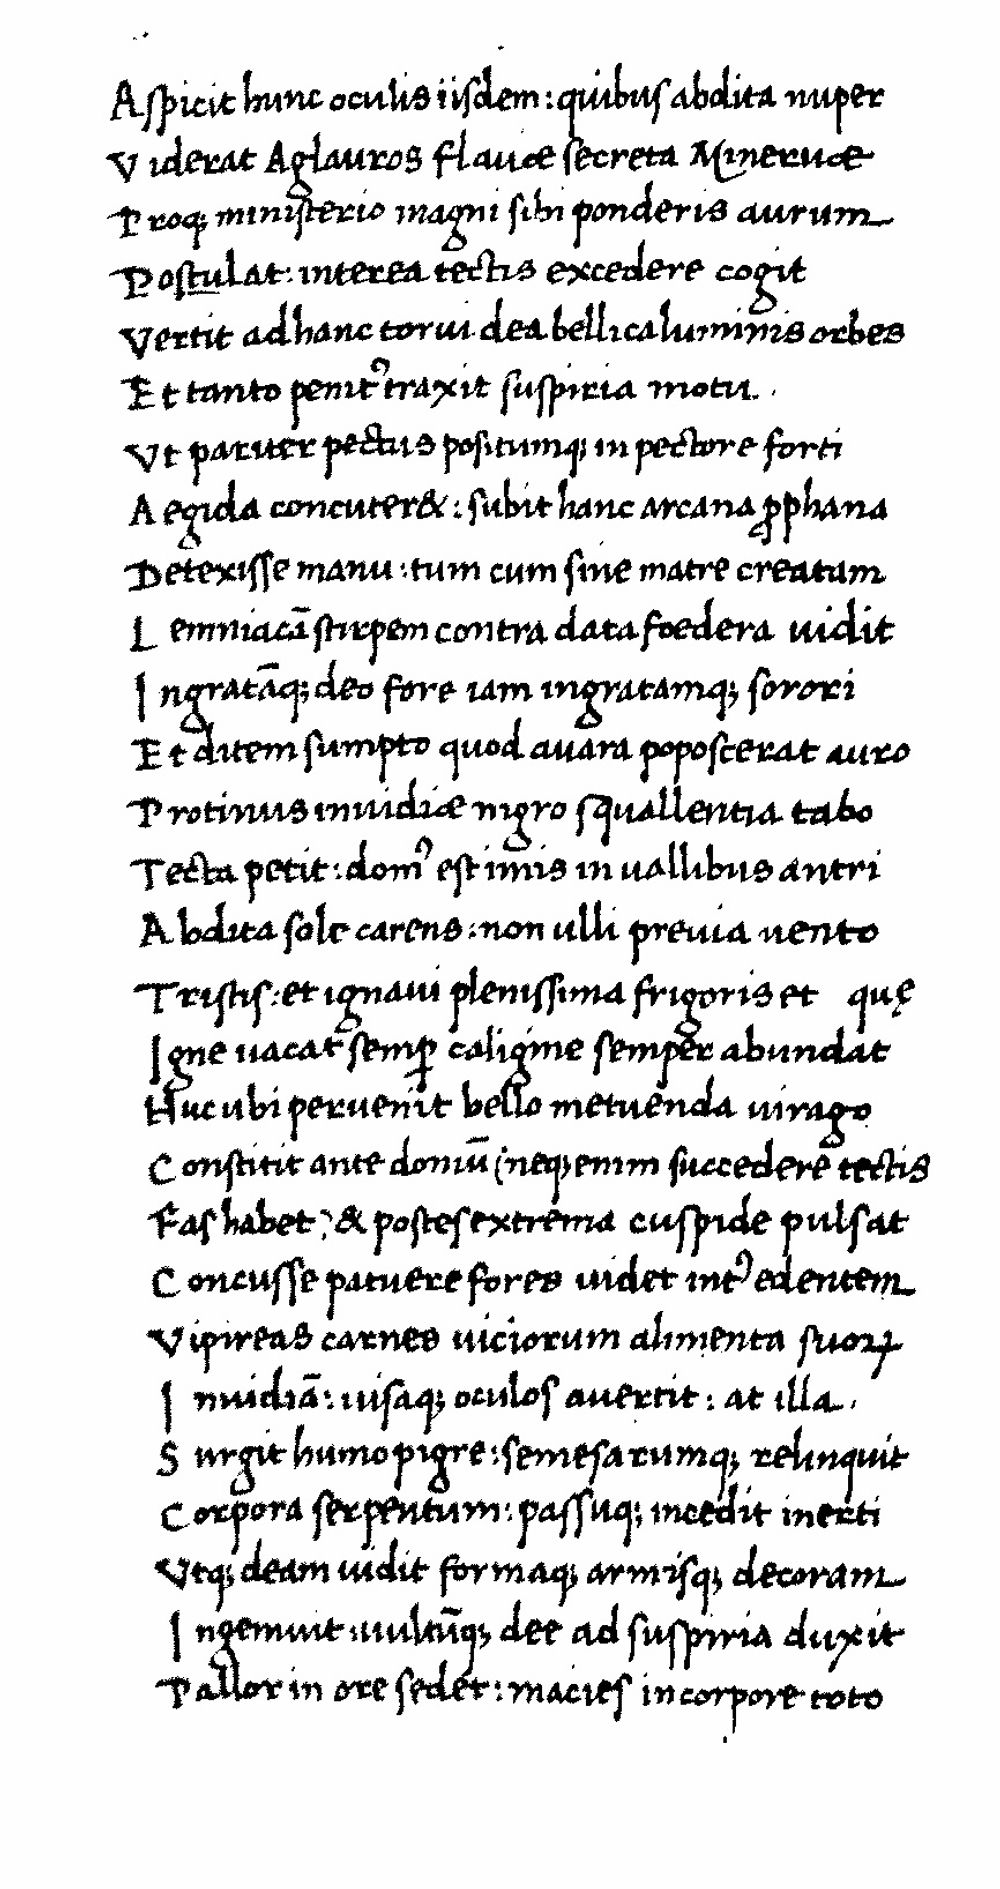 Aspicit hunc oculis iisdem: quibus abdita nuper
Viderat Aglauros flauæ secreta Mineruæ
Proq; ministerio magni sibi ponderis aurum
Postulat: interea tectis excedere cogit
Vertit ad hanc torui dea bellica luminis orbes
Et tanto penitꝰ traxit suspiria motu.
Vt pariter pectus positumq; in pectore forti
Aegida concuter&: subit hanc arcana ꝓphana
Detexisse manu: tum cum sine matre creatam
Lemniacā stirpem contra data foedera uidit
Ingratāq; deo fore iam ingratamq; sorori
Et ditem sumpto quod auara poposcerat auro
Protinus inuidiæ nigro squallentia tabo
Tecta petit: domꝰ est imis in uallibus antri
Abdita sole carens: non ulli preuia uento
Tristis: et ignaui plenissima frigoris et quę
Igne uacat semꝑ caligine semper abundat
Huc ubi peruenit bello metuenda uirago
Constitit ante domū (neq; enim succedere tectis
Fas habet) & postes extrema cuspide pulsat
Concusse patuere fores uidet intꝰ edentem
Vipireas carnes uiciorum alimenta suoꝝ
Inuidiā: uisaq; oculos auertit: at illa.
Surgit humo pigre: semesarumq; relinquit
Corpora serpentum: passuq; incedit inerti
Vtq; deam uidit formaq; armisq; decoram
Ingemuit: uultūq; dee ad suspiria duxit
Pallor in ore sedet: macies in corpore toto